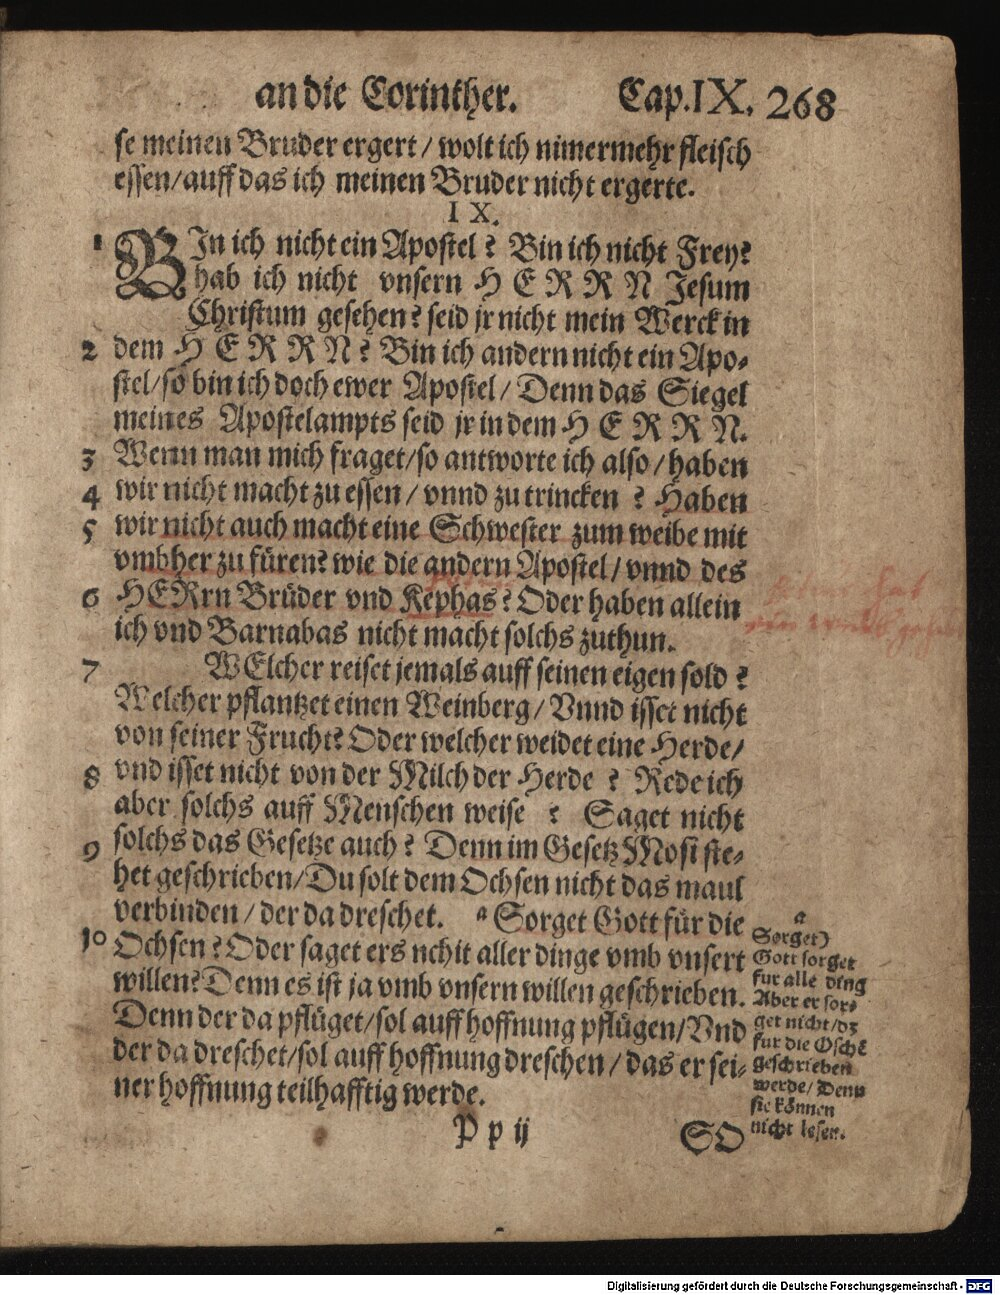 an die Corinther. Cap.IX. 268
se meinen Bruder ergert / wolt ich nimermehr fleisch
essen/auff das ich meinen Bruder nicht ergerte.
IX.
1 BJn ich nicht ein Apostel? Bin ich nicht Frey?
hab ich nicht vnsern HERRN Jesum
Christum gesehen? seid jr nicht mein Werck in
2 dem HERRN? Bin ich andern nicht ein Apo-
stel/so bin ich doch ewer Apostel/ Denn das Siegel
meines Apostelampts seid jr in dem HERRN.
3 Wenn man mich fraget/so antworte ich also/haben
4 wir nicht macht zu essen/ vnnd zu trincken? Haben
5 wir nicht auch macht eine Schwester zum weibe mit
vmbher zu füren? wie die andern Apostel/ vnnd des
6 HERrn Brüder vnd Kephas? Oder haben allein
ich vnd Barnabas nicht macht solchs zuthun.
7 WElcher reiset jemals auff seinen eigen sold?
Welcher pflantzet einen Weinberg/ Vnnd isset nicht
von seiner Frucht? Oder welcher weidet eine Herde/
8 vnd isset nicht von der Milch der Herde? Rede ich
aber solchs auff Menschen weise? Saget nicht
9 solchs das Gesetze auch? Denn im Gesetz Mosi ste-
het geschrieben/Du solt dem Ochsen nicht das maul
verbinden / der da dreschet. a Sorget Gott für die
10 Ochsen? Oder saget ers nchit aller dinge vmb vnsert
willen? Denn es ist ja vmb vnsern willen geschrieben.
Denn der da pflüget/sol auff hoffnung pflügen/Vnd
der da dreschet/sol auff hoffnung dreschen/ das er sei-
ner hoffnung teilhafftig werde.
P p ij SO
a
Sorget)
Gott sorget
fur alle ding
Aber er sor-
get nicht/dz
fur die Ochsē
geschrieben
werde/ Denn
sie können
nicht lesen.
hat
Digitalisierung gefördert durch die Deutsche Forschungsgemeinschaft - DFG